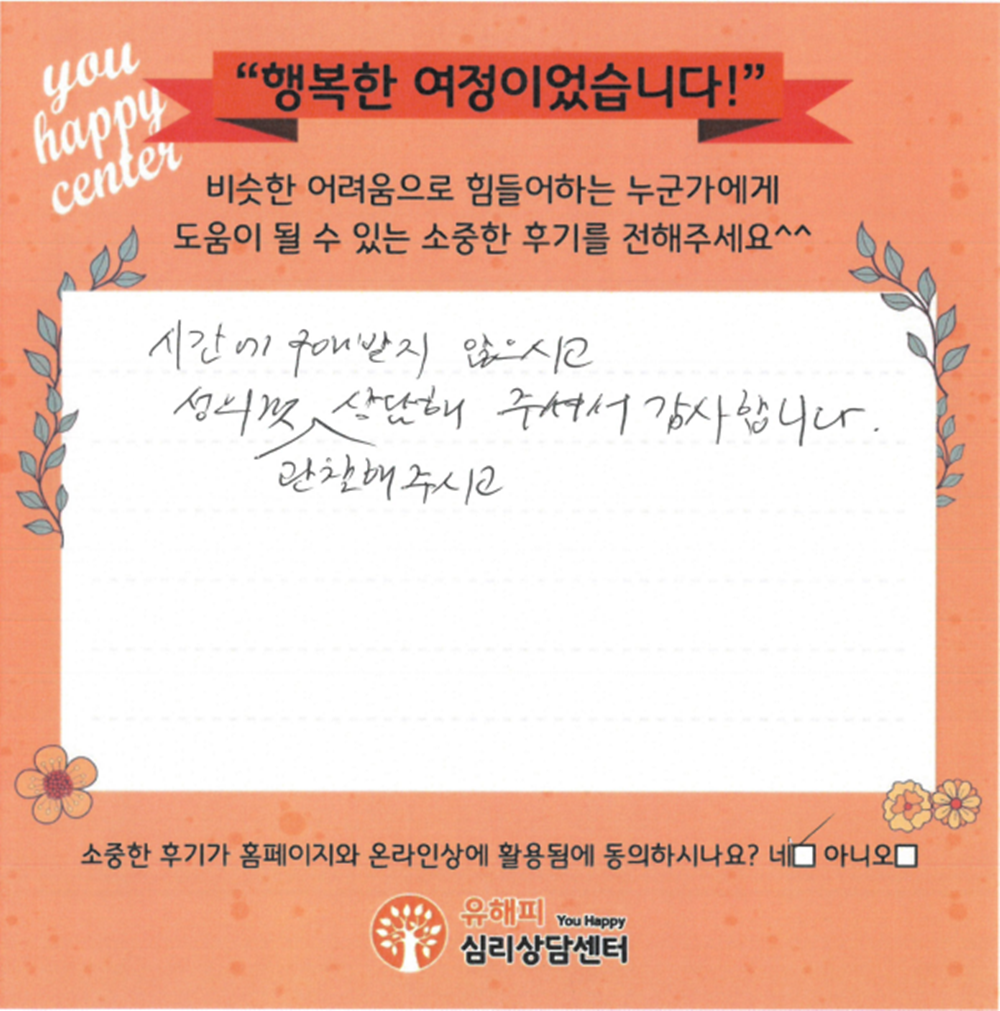 you
happy
center
“행복한 여정이었습니다!”
비슷한 어려움으로 힘들어하는 누군가에게
도움이 될 수 있는 소중한 후기를 전해주세요^^
시간에 구애받지 않으시고
성의껏 상담해 주셔서 감사합니다.
관찰해주시고
소중한 후기가 홈페이지와 온라인상에 활용됨에 동의하시나요? 네□ 아니오□
유해피 You Happy
심리상담센터